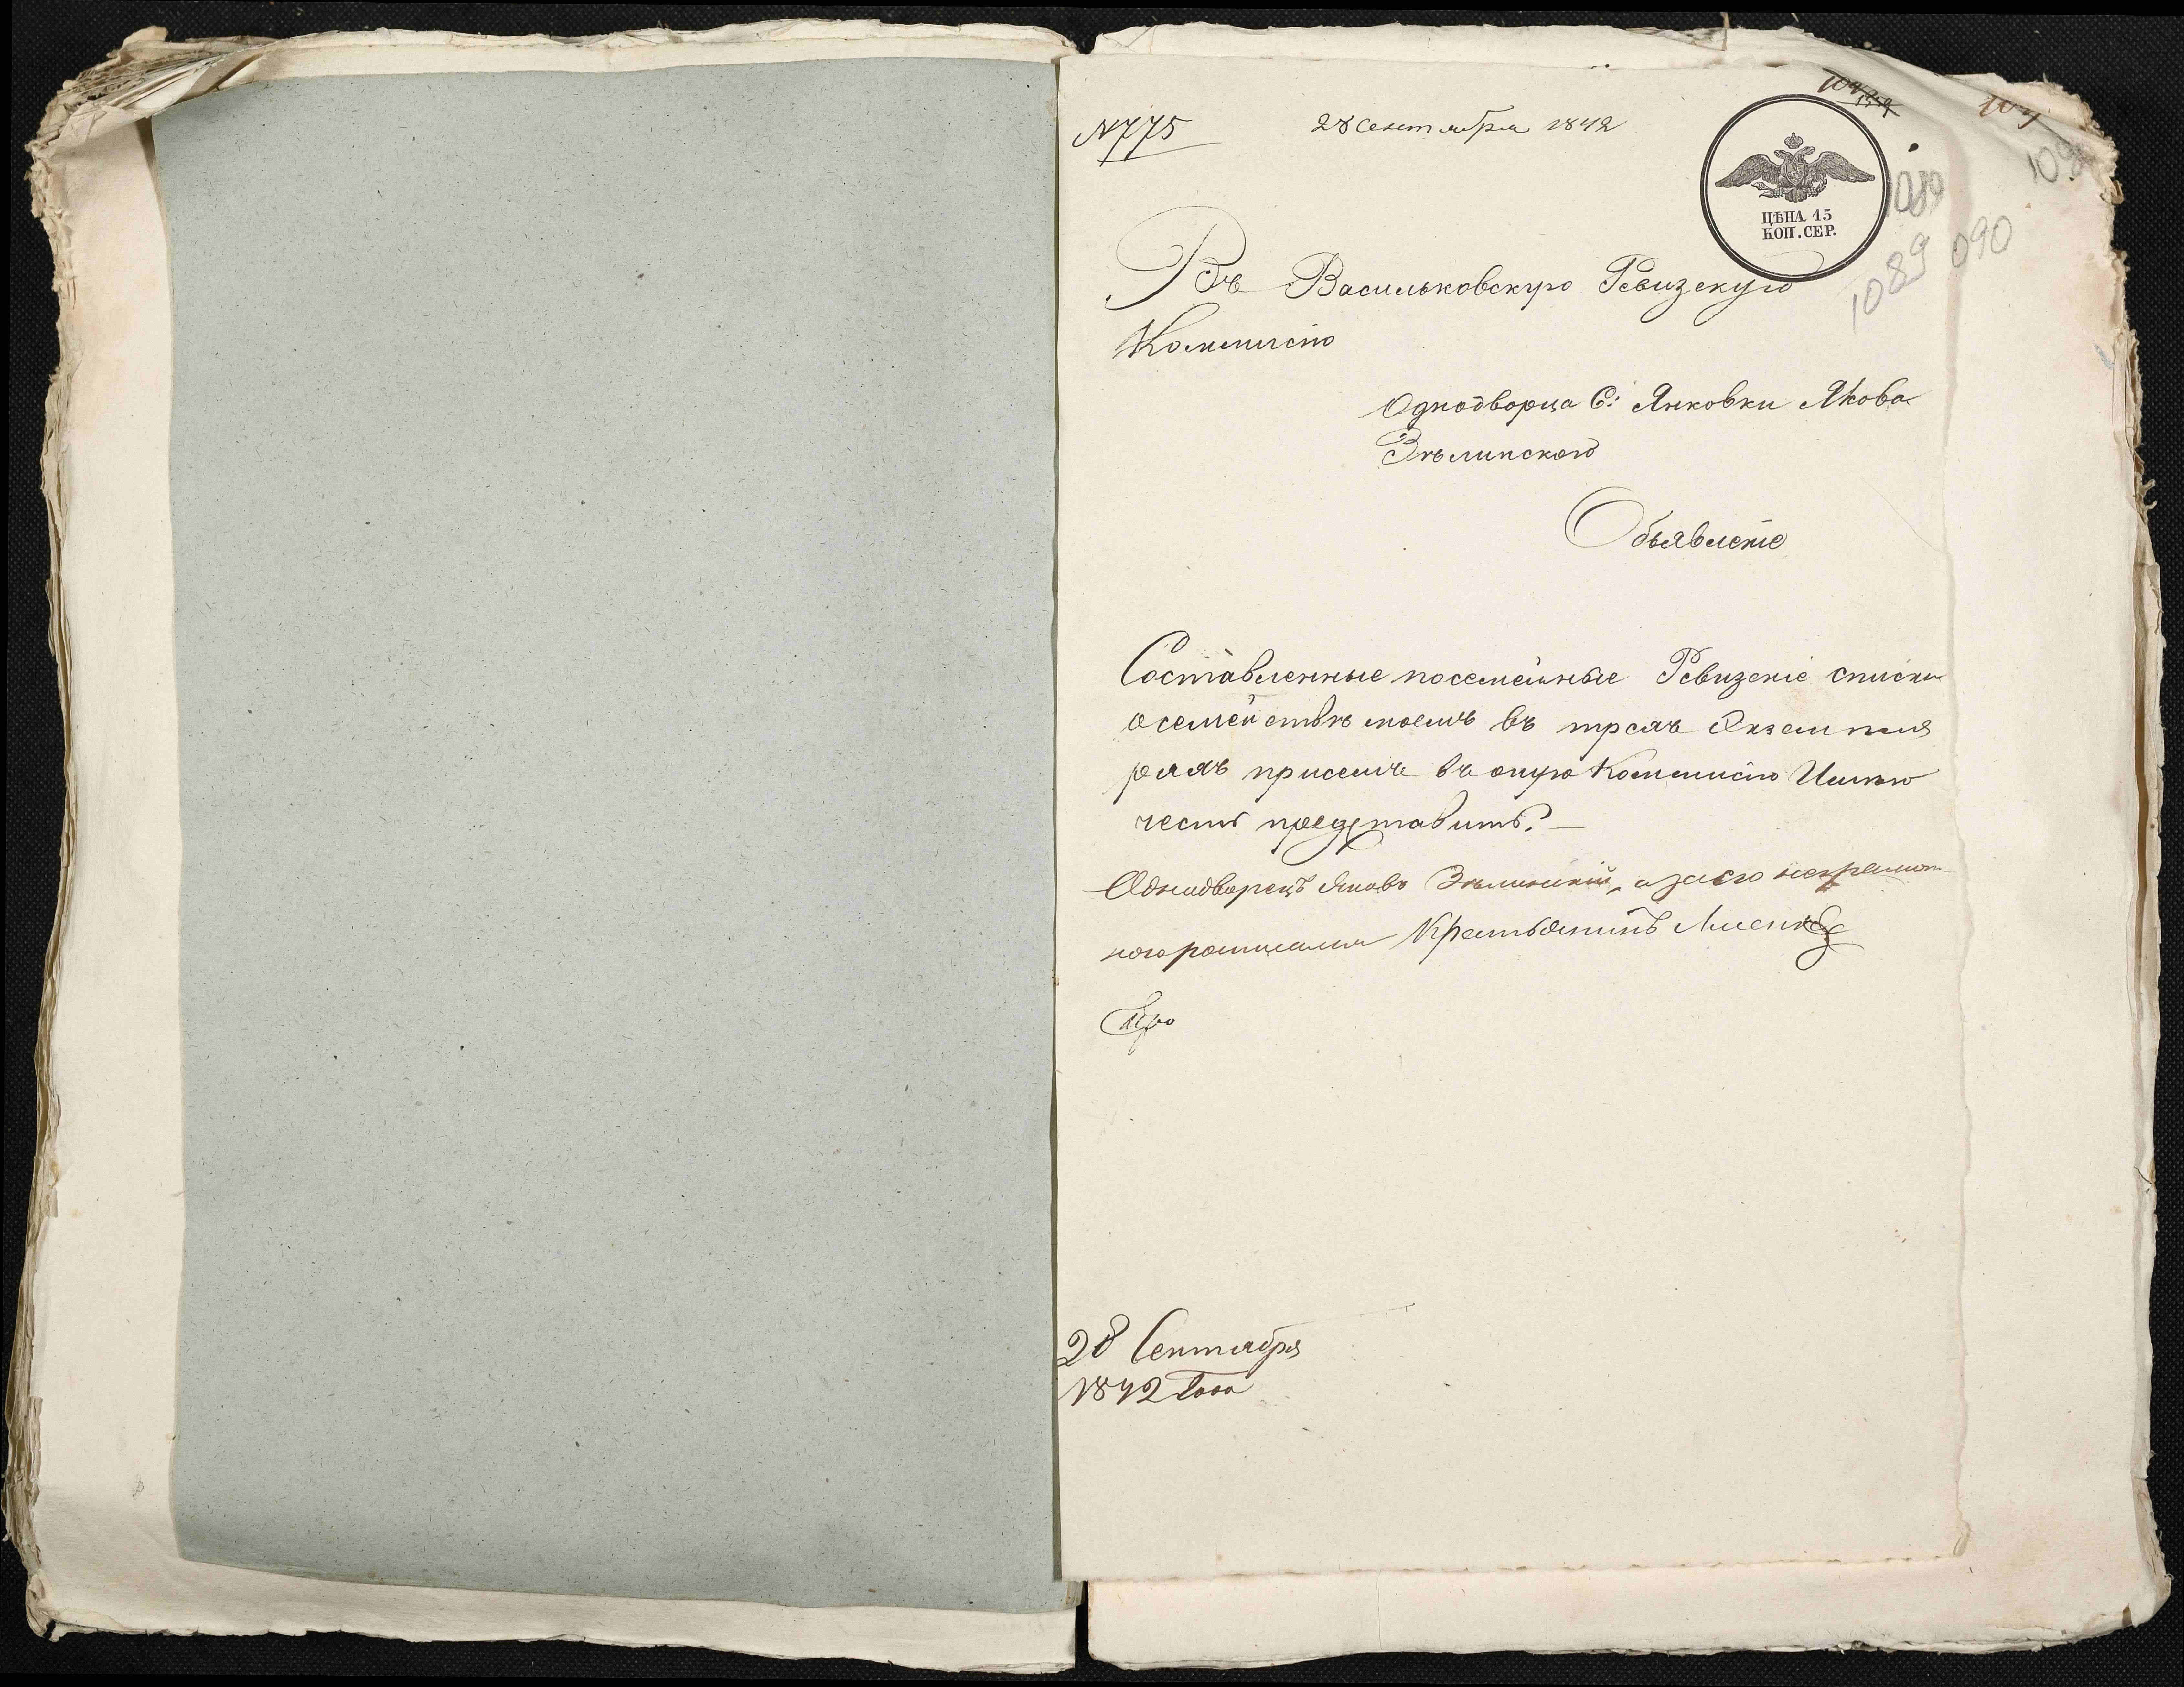 N775
28 Сентября 1842
ЦѢНА 15
КОП. СЕР.
1089 090
Въ Васильковскую Ревизскую
Коммисію
Однодворца С: Янковки Якова
Зѣлинского
Объявленіе
Составленные посемейные Ревизскіе списки
о семействѣ моемъ въ трехъ Экземпля
рахъ присемъ въ оную Коммисію Имѣю
честь представить.
Однодворецъ Яковъ Зѣлинскій, а за его неграмот
ного росписался Крестьянинъ
28 Сентября
1842 Года